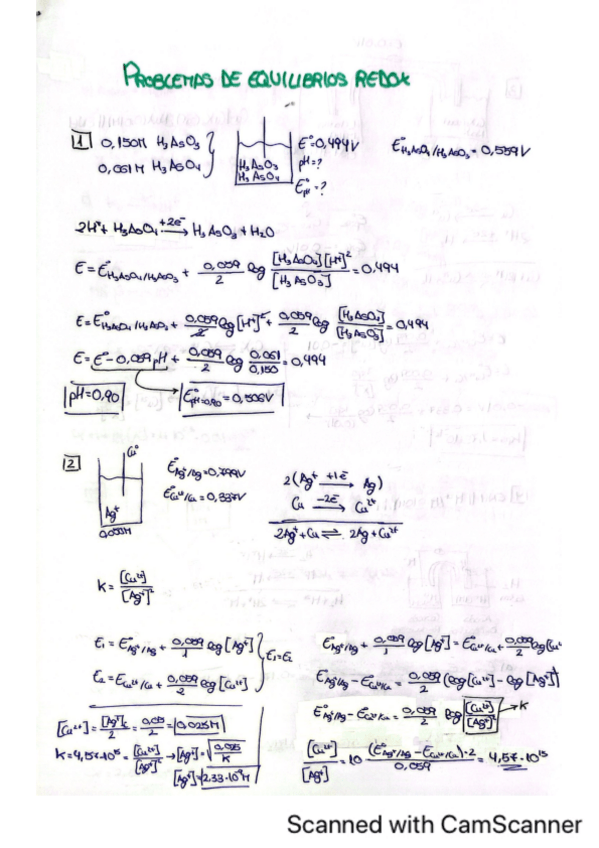 PROBLEMAS DE EQUILIBRIOS REDOX
1 0,150M H₃AsO₃
0,061M H₃AsO₄
H₃AsO₃
H₃AsO₄
E=0,494V
pH=?
E°pH=?
E°H₃AsO₄/H₃AsO₃=0,559V
2H⁺+H₃AsO₄ +2e⁻→ H₃AsO₃+H₂O
E=E°H₃AsO₄/H₃AsO₃ + 0,059/2 log [H₃AsO₄][H⁺]²/[H₃AsO₃] = 0,494
E=E°H₃AsO₄/H₃AsO₃ + 0,059/2 log[H⁺]² + 0,059/2 log [H₃AsO₄]/[H₃AsO₃] = 0,494
E=E°-0,059pH + 0,059/2 log 0,061/0,150 = 0,494
pH=0,90 → E°pH=0,90=0,506V
2 Cu°
Ag⁺
E°Ag⁺/Ag=0,799V
E°Cu²⁺/Cu=0,337V
2(Ag⁺ +1e⁻→ Ag)
Cu -2e⁻→ Cu²⁺
2Ag⁺+Cu ⇌ 2Ag+Cu²⁺
K=[Cu²⁺]/[Ag⁺]²
E₁=E°Ag⁺/Ag + 0,059/1 log[Ag⁺]
E₂=E°Cu²⁺/Cu + 0,059/2 log[Cu²⁺]
E₁=E₂
E°Ag⁺/Ag + 0,059/1 log[Ag⁺] = E°Cu²⁺/Cu + 0,059/2 log[Cu²⁺
E°Ag⁺/Ag - E°Cu²⁺/Cu = 0,059/2 (log[Cu²⁺] - log[Ag⁺]²)
E°Ag⁺/Ag - E°Cu²⁺/Cu = 0,059/2 log [Cu²⁺]/[Ag⁺]² → K
[Cu²⁺]/[Ag⁺] = 10 (E°Ag⁺/Ag - E°Cu²⁺/Cu)·2/0,059 = 4,57·10¹⁵
[Cu²⁺]=[Ag⁺]/2=0,05/2=0,025M
K=4,57·10¹⁵=[Cu²⁺]/[Ag⁺]² → [Ag⁺]=√0,025/K
[Ag⁺]=2.33·10⁻⁹M
Scanned with CamScanner